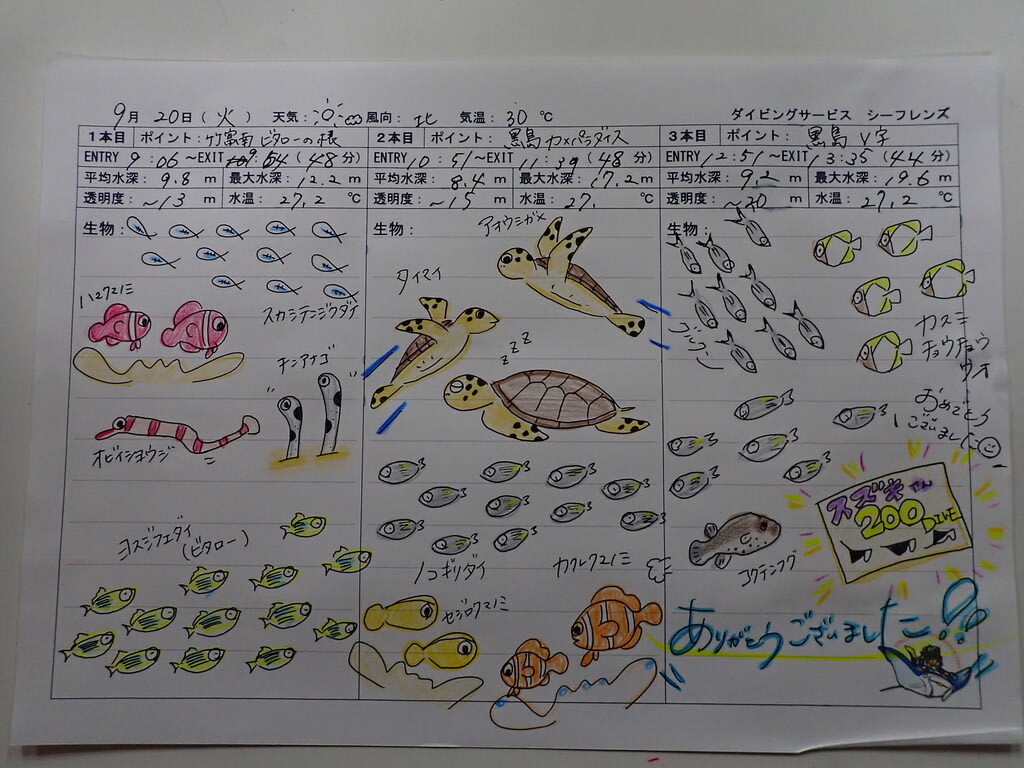 9月 20日(火) 天気: 風向: 北 気温: 30 ℃ ダイビングサービス シーフレンズ
1本目 ポイント: 竹富南 ビタローの根
ENTRY 9:06~EXIT 9:54(48分)
平均水深: 9.8 m 最大水深: 12.2 m
透明度: ~13 m 水温: 27.2 ℃
生物:
スカシテンジクダイ
ハマクマノミ
チンアナゴ
オビイシヨウジ
ヨスジフエダイ
(ビタロー)
2本目 ポイント: 黒島 カメパラダイス
ENTRY 10:51~EXIT 11:39(48分)
平均水深: 8.4 m 最大水深: 17.2 m
透明度: ~15 m 水温: 27. ℃
生物:
アオウミガメ
タイマイ
zzz
ノコギリダイ
カクレクマノミ
セジロクマノミ
3本目 ポイント: 黒島 V字
ENTRY 12:51~EXIT 13:35(44分)
平均水深: 9.2 m 最大水深: 19.6 m
透明度: ~20 m 水温: 27.2 ℃
生物:
グルクン
カスミ
チョウチョウ
ウオ
おめでとう
ございました
スズキさん
200 DIVE
コクテンフグ
ありがとうございました!!